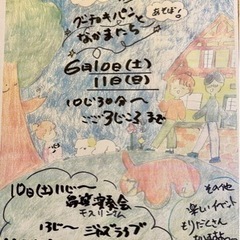 グーチョキパンと
なかまたち
あそぼ!
6月10日(土)
11日(日)
10じ30分〜
ごご3じころまで
10日(土)11じ〜
音楽演奏会
13じ〜
ジャズライブ
その他
楽しいイベント
もりだくさん